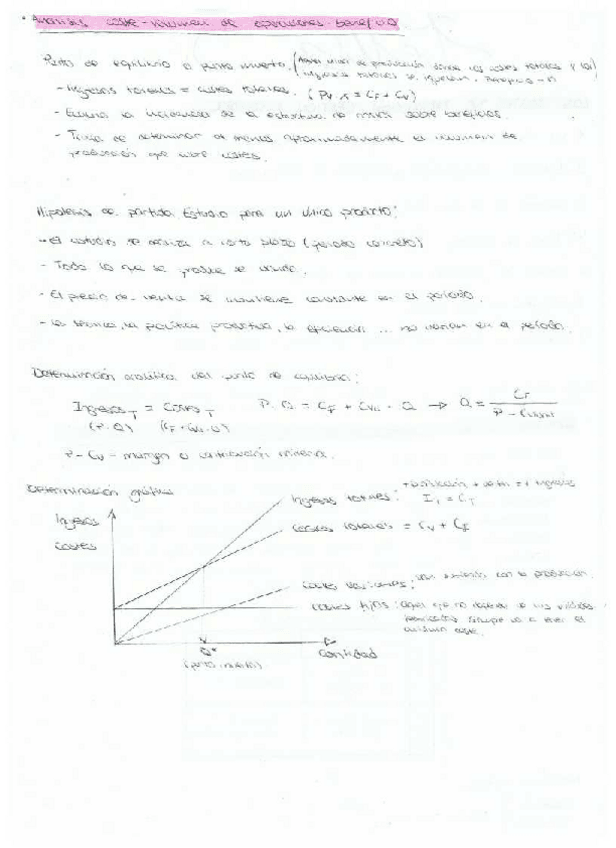 • Análisis coste-volumen de operaciones-beneficio
Punto de equilibrio o punto muerto. (nivel de producción donde los costes totales y los
ingresos totales se igualan, Beneficio = 0)
- Ingresos totales = costes totales. (Pv · x = CF + CV)
- Evalúa la incidencia de la estructura de costes sobre beneficios.
- Trata de determinar al menos aproximadamente el volumen de
producción que cubre costes.
Hipótesis de partida. Estudio para un único producto:
- El estudio se realiza a corto plazo (periodo concreto)
- Todo lo que se produce se vende.
- El precio de venta se mantiene constante en el periodo.
- La técnica, la política productiva, la eficiencia ... no varían en el periodo.
Determinación analítica del punto de equilibrio:
Ingresos T = Costes T P · Q = CF + CVu · Q → Q = CF / P - CVunit
(P · Q) (CF + CVu · Q)
P - CV = margen o contribución
Determinación gráfica
+ producción + ventas = + ingresos
Ingresos totales: IT = CT
Ingresos
Costes
costes totales = CV + CF
costes variables: van variando con la producción.
costes fijos: aquel que no depende de las unidades
producidas siempre va a ser el
mismo coste.
Q* Cantidad
(punto muerto)